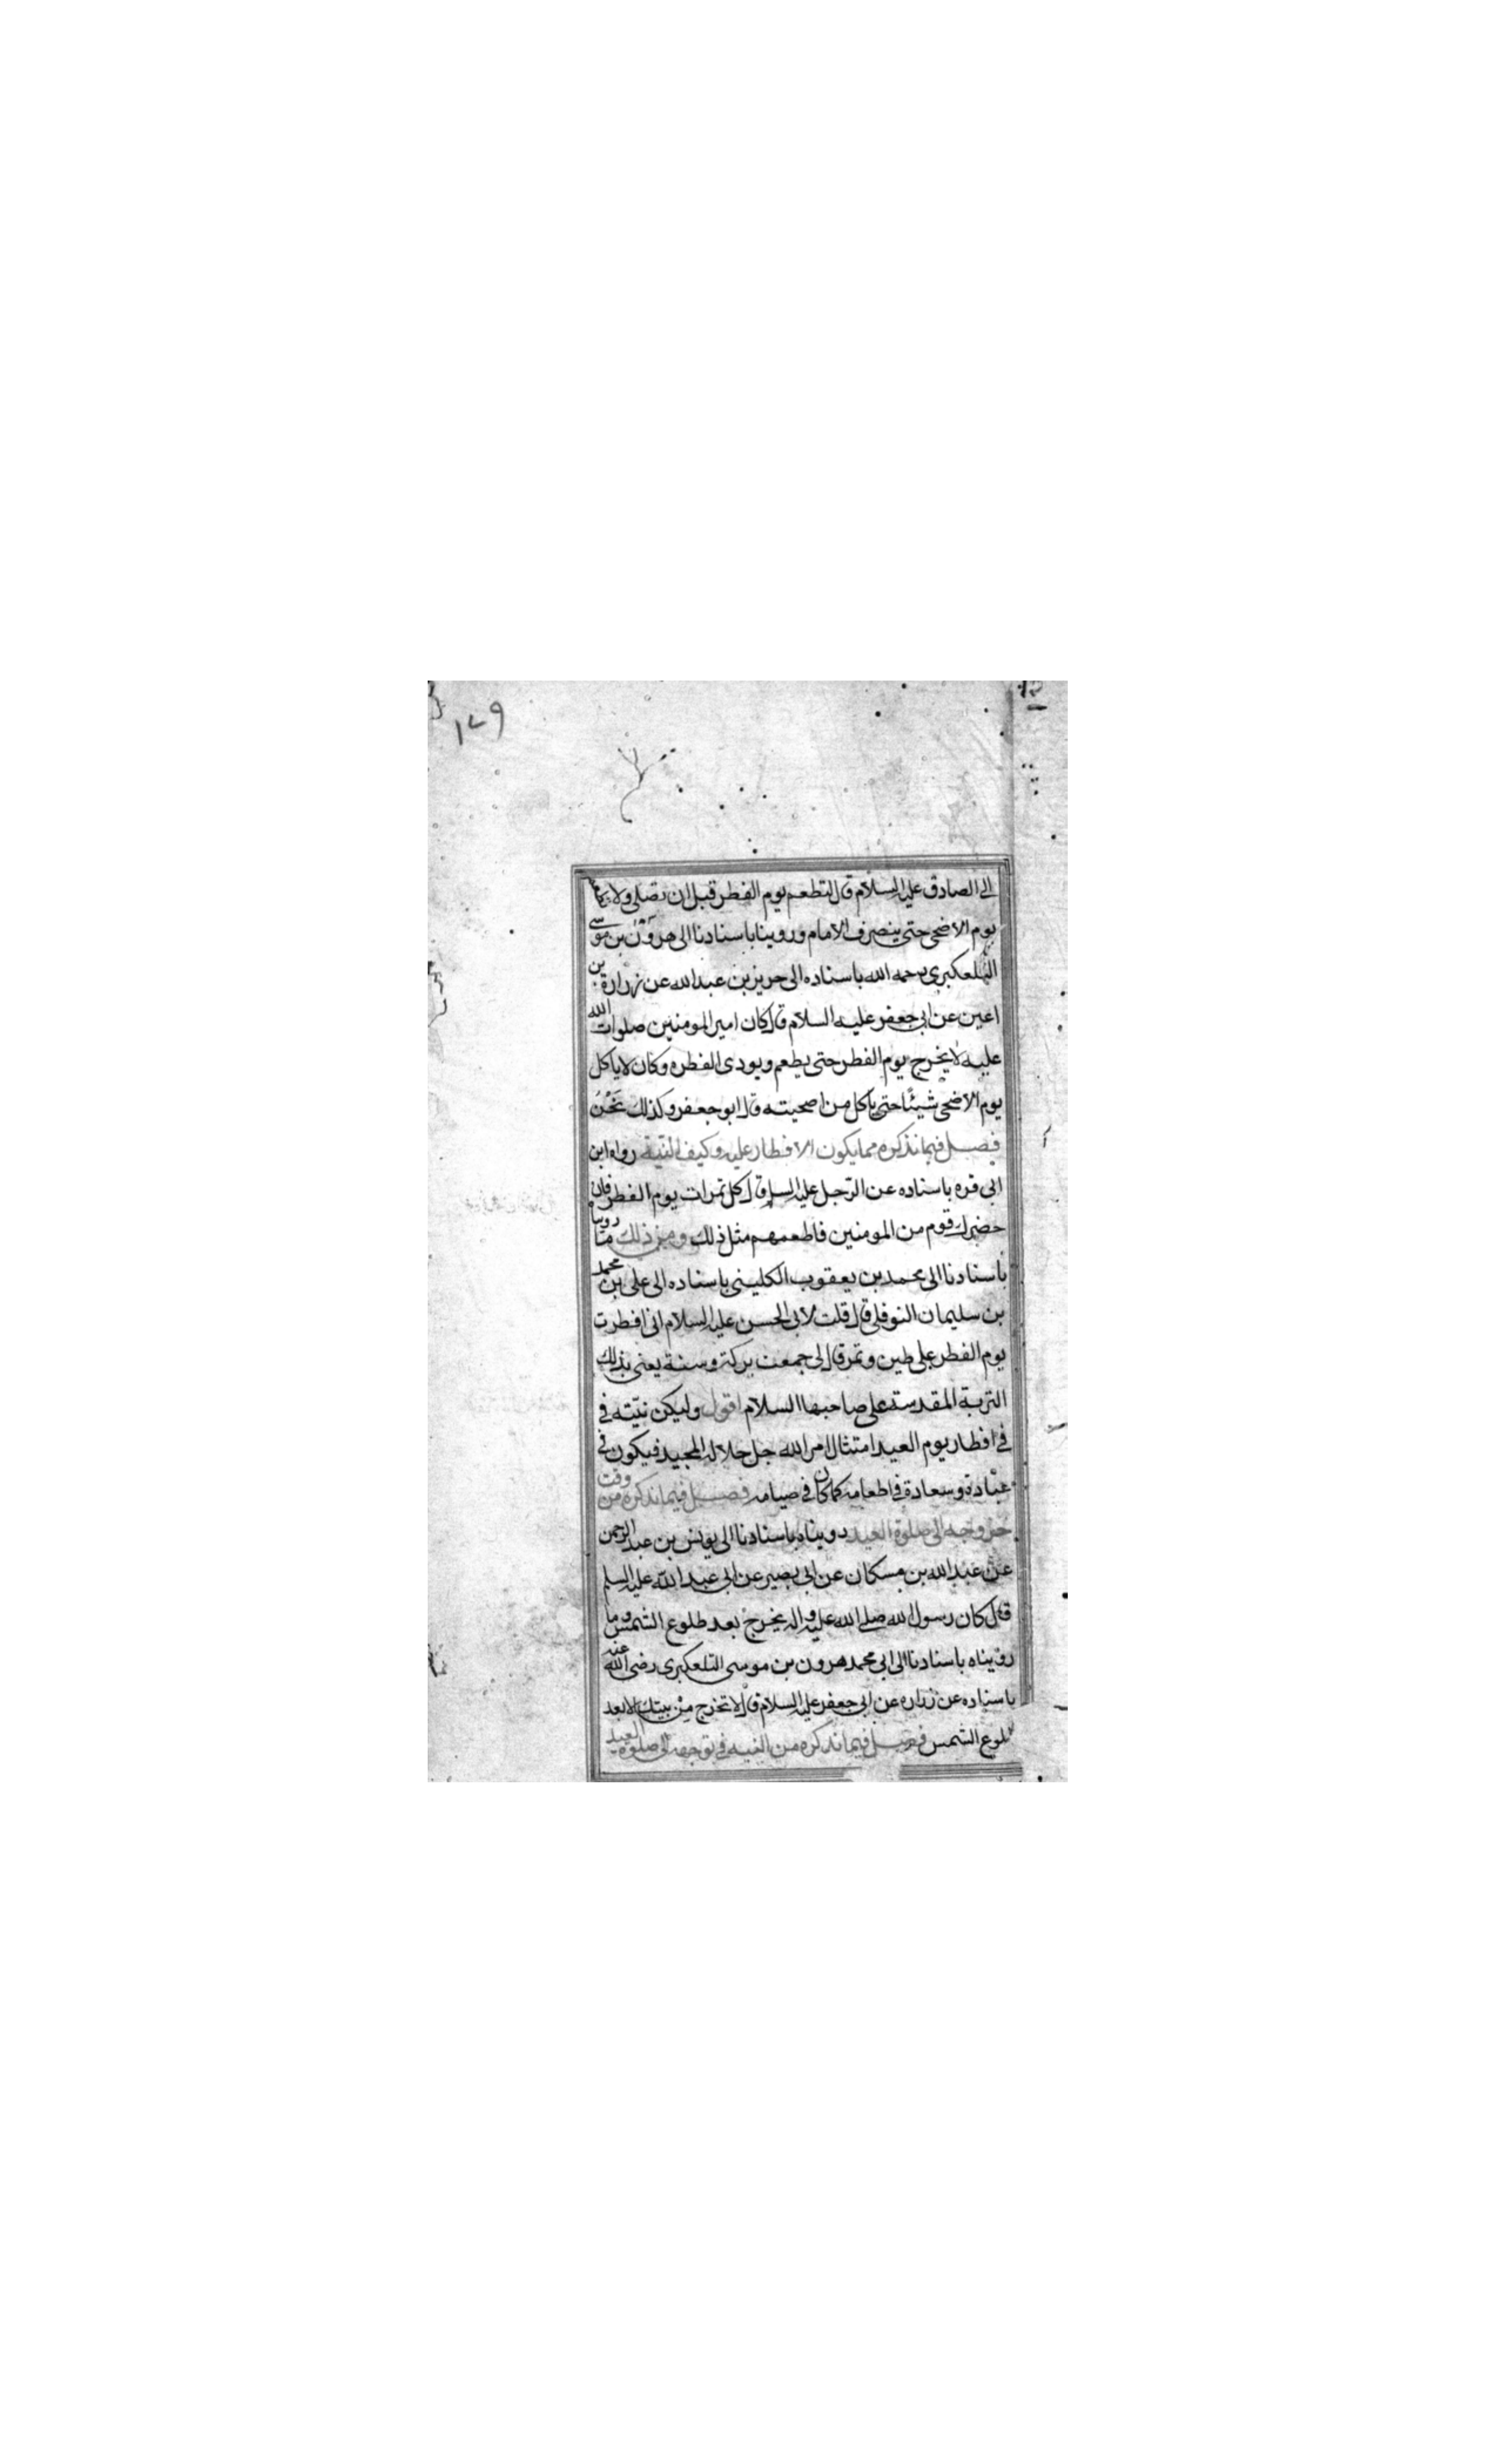 ١٧٩
الى الصادق عليه السلام قال لتطعم يوم الفطر قبل ان تصلى ولا
يوم الاضحى حتى ينصرف الامام وروينا باسنادنا الى هرون بن موسى
التلعكبرى رحمه الله باسناده الى حريز بن عبدالله عن زرارة بن
اعين عن ابى جعفر عليه السلام قال كان امير المومنين صلوات الله
عليه لا يخرج يوم الفطر حتى يطعم ويودى الفطره وكان لا ياكل
يوم الاضحى شيئا حتى ياكل من اضحيته قال ابو جعفر وكذلك نحن
فصل فيما نذكره مما يكون الافطار عليه وكيف النية رواه ابن
ابى قره باسناده عن الرجل عليه السلم قال كل تمرات يوم الفطر فان
حضرك قوم من المومنين فاطعمهم مثل ذلك ومن ذلك ما رويناه
باسنادنا الى محمد بن يعقوب الكلينى باسناده الى على بن محمد
بن سليمان النوفلى قال قلت لابى الحسن عليه السلام انى افطرت
يوم الفطر على طين وتمر قال لى جمعت بركة وسنة يعنى بذلك
التربة المقدسة على صاحبها السلام اقول وليكن نيته فى
فى افطار يوم العيد امتثال امر الله جل جلاله المجيد فيكون فى
عبادة وسعادة فى اطعامه كما كان فى صيامه فصل فيما نذكره من وقت
خروجه الى صلوة العيد رويناه باسنادنا الى يونس بن عبد الرحمن
عن عبد الله بن مسكان عن ابى بصير عن ابى عبد الله عليه السلم
قال كان رسول الله صلى الله عليه واله يخرج بعد طلوع الشمس وما
رويناه باسنادنا الى ابى محمد هرون بن موسى التلعكبرى رضى الله عنه
باسناده عن زراره عن ابى جعفر عليه السلام قال لا تخرج من بيتك الا بعد
طلوع الشمس فصل فيما نذكره من النيه فى توجهه الى صلوة العيد